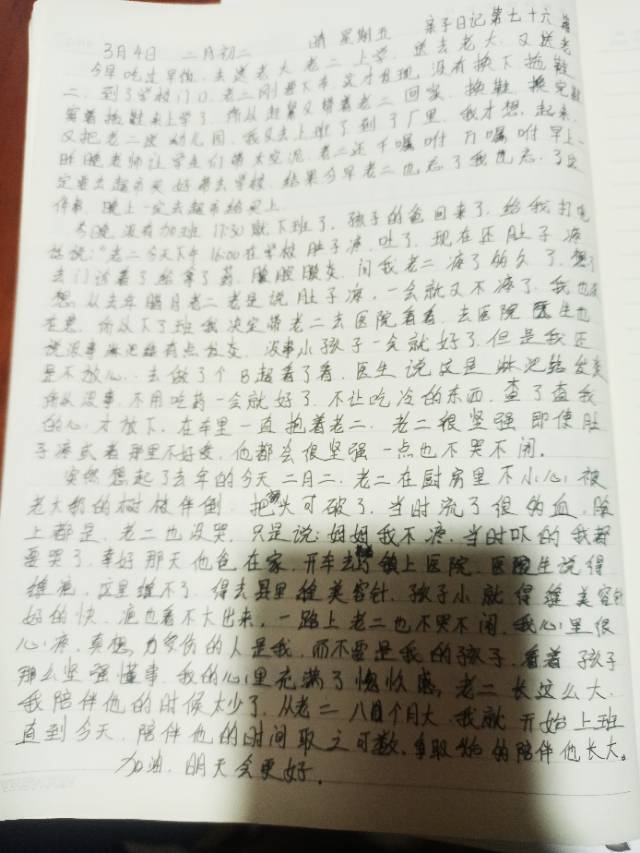 3月4日 二月初二 晴 星期五 亲子日记第七十六篇
今早吃过早饭,去送老大老二上学,送去老大,又送老
二,到了学校门口,老二刚要下车,这才发现,没有换下拖鞋
穿着拖鞋来上学了,所以赶紧又带着老二回家,换鞋,换完鞋
又把老二送幼儿园,我又去上班了到了厂里,我才想起来,
昨晚老师让学生们带太空泥,老二还千嘱咐万嘱咐早上一
定要去超市买好带去学校,结果今早老二也忘了我也忘了这
件事,晚上一定去超市给买上。
今晚没有加班17:30就下班了,孩子的爸回来了,给我打电
话说:"老二今天下午16:00在学校肚子疼,吐了,现在还肚子疼
去门诊看了给拿了药,肠胶膜炎,问我老二疼了的久了,想了
想,从去年腊月老二老是说肚子疼,一会就又不疼了,我也没
在意,所以下了班我决定带老二去医院看看,去医院医生也
说没事淋巴结有点发炎,没事小孩子一会就好了,但是我还
是不放心,去做了个B超看了看,医生说这是淋巴结发炎
所以没事,不用吃药一会就好了,不让吃冷的东西,查了查我
的心才放下,在车里一直抱着老二,老二很坚强即使肚
子疼或者哪里不好受,他都会很坚强一点也不哭不闹。
突然想起了去年的今天二月二,老二在厨房里不小心被
老大都的树枝伴倒,把头可破了,当时流了很多血,脸
上都是,老二也没哭,只是说:妈妈我不疼,当时吓的我都
要哭了,幸好那天他爸在家,开车去了镇上医院,医院生说得
缝疤,这里缝不了,得去县里缝美容针,孩子小就得缝美容针
好的快,疤也看不大出来,一路上老二也不哭不闹,我心里很
心疼,真想,为受伤的人是我,而不要是我的孩子,看着孩子
那么坚强懂事,我的心里充满了愧疚感,老二长这么大,
我陪伴他的时候太少了,从老二八个月大,我就开始上班
直到今天,陪伴他的时间取之可数,争取多的陪伴他长大。
加油,明天会更好。